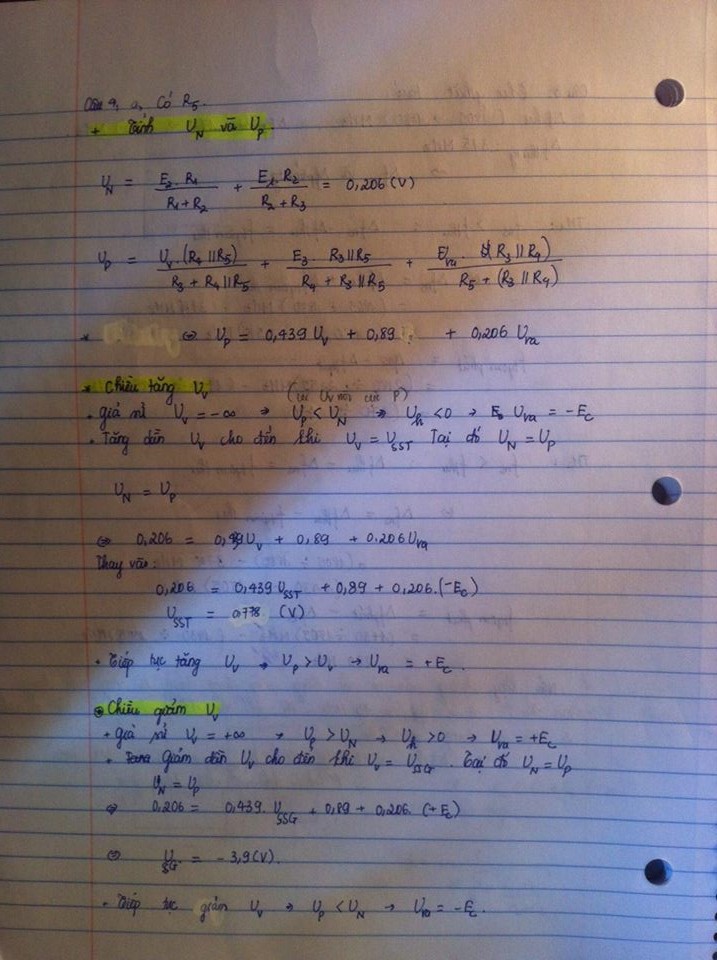 Câu 9, a, Có R5.
+ Tính U_N và U_P
U_N = E2.R1 / (R1+R2) + E1.R2 / (R2+R3) = 0,206 (V)
U_P = U_v.(R4//R5) / (R3 + R4//R5) + E3.R3//R5 / (R4 + R3//R5) + U_ra.(R3//R4) / (R5 + (R3//R4))
⇔ U_P = 0,439 U_v + 0,89 + 0,206 U_ra
* Chiều tăng U_v
(vì Uv nối cực P)
+ giả sử U_v = -∞ → U_P < U_N → U_h < 0 → U_ra = -E_c
+ Tăng dần U_v cho đến khi U_v = U_SST Tại đó U_N = U_P
U_N = U_P
⇔ 0,206 = 0,439 U_v + 0,89 + 0.206 U_ra
Thay vào:
0,206 = 0,439 U_SST + 0,89 + 0,206.(-E_c)
U_SST = 0,778 (V)
+ Tiếp tục tăng U_v → U_P > U_v → U_ra = +E_c.
* Chiều giảm U_v
+ giả sử U_v = +∞ → U_P > U_N → U_h > 0 → U_ra = +E_c
+ Giảm dần U_v cho đến khi U_v = U_SSG. Tại đó U_N = U_P
U_N = U_P
⇔ 0,206 = 0,439. U_SSG + 0,89 + 0,206. (+E_c)
⇔ U_SG = -3,9 (V).
+ Tiếp tục giảm U_v → U_P < U_N → U_ra = -E_c.